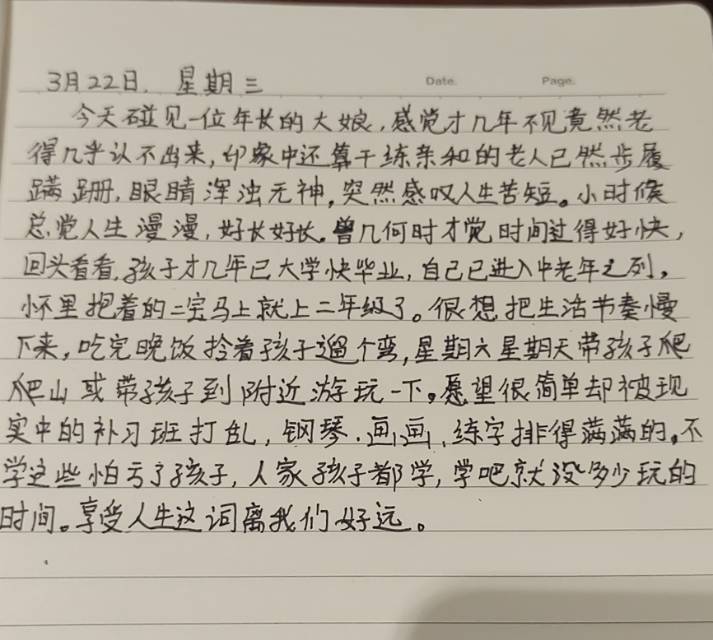 Date.
Page.
3月22日. 星期三
今天碰见一位年长的大娘,感觉才几年不见竟然老
得几乎认不出来,印象中还算干练亲和的老人已然步履
蹒跚,眼睛浑浊无神,突然感叹人生苦短。小时候
总觉人生漫漫,好长好长。曾几何时才觉时间过得好快,
回头看看,孩子才几年已大学快毕业,自己已进入中老年之列,
怀里抱着的二宝马上就上二年级了。很想把生活节奏慢
下来,吃完晚饭拎着孩子遛个弯,星期六星期天带孩子爬
爬山或带孩子到附近游玩一下。愿望很简单却被现
实中的补习班打乱,钢琴.画画.练字排得满满的,不
学这些怕亏了孩子,人家孩子都学,学吧就没多少玩的
时间。享受人生这词离我们好远。